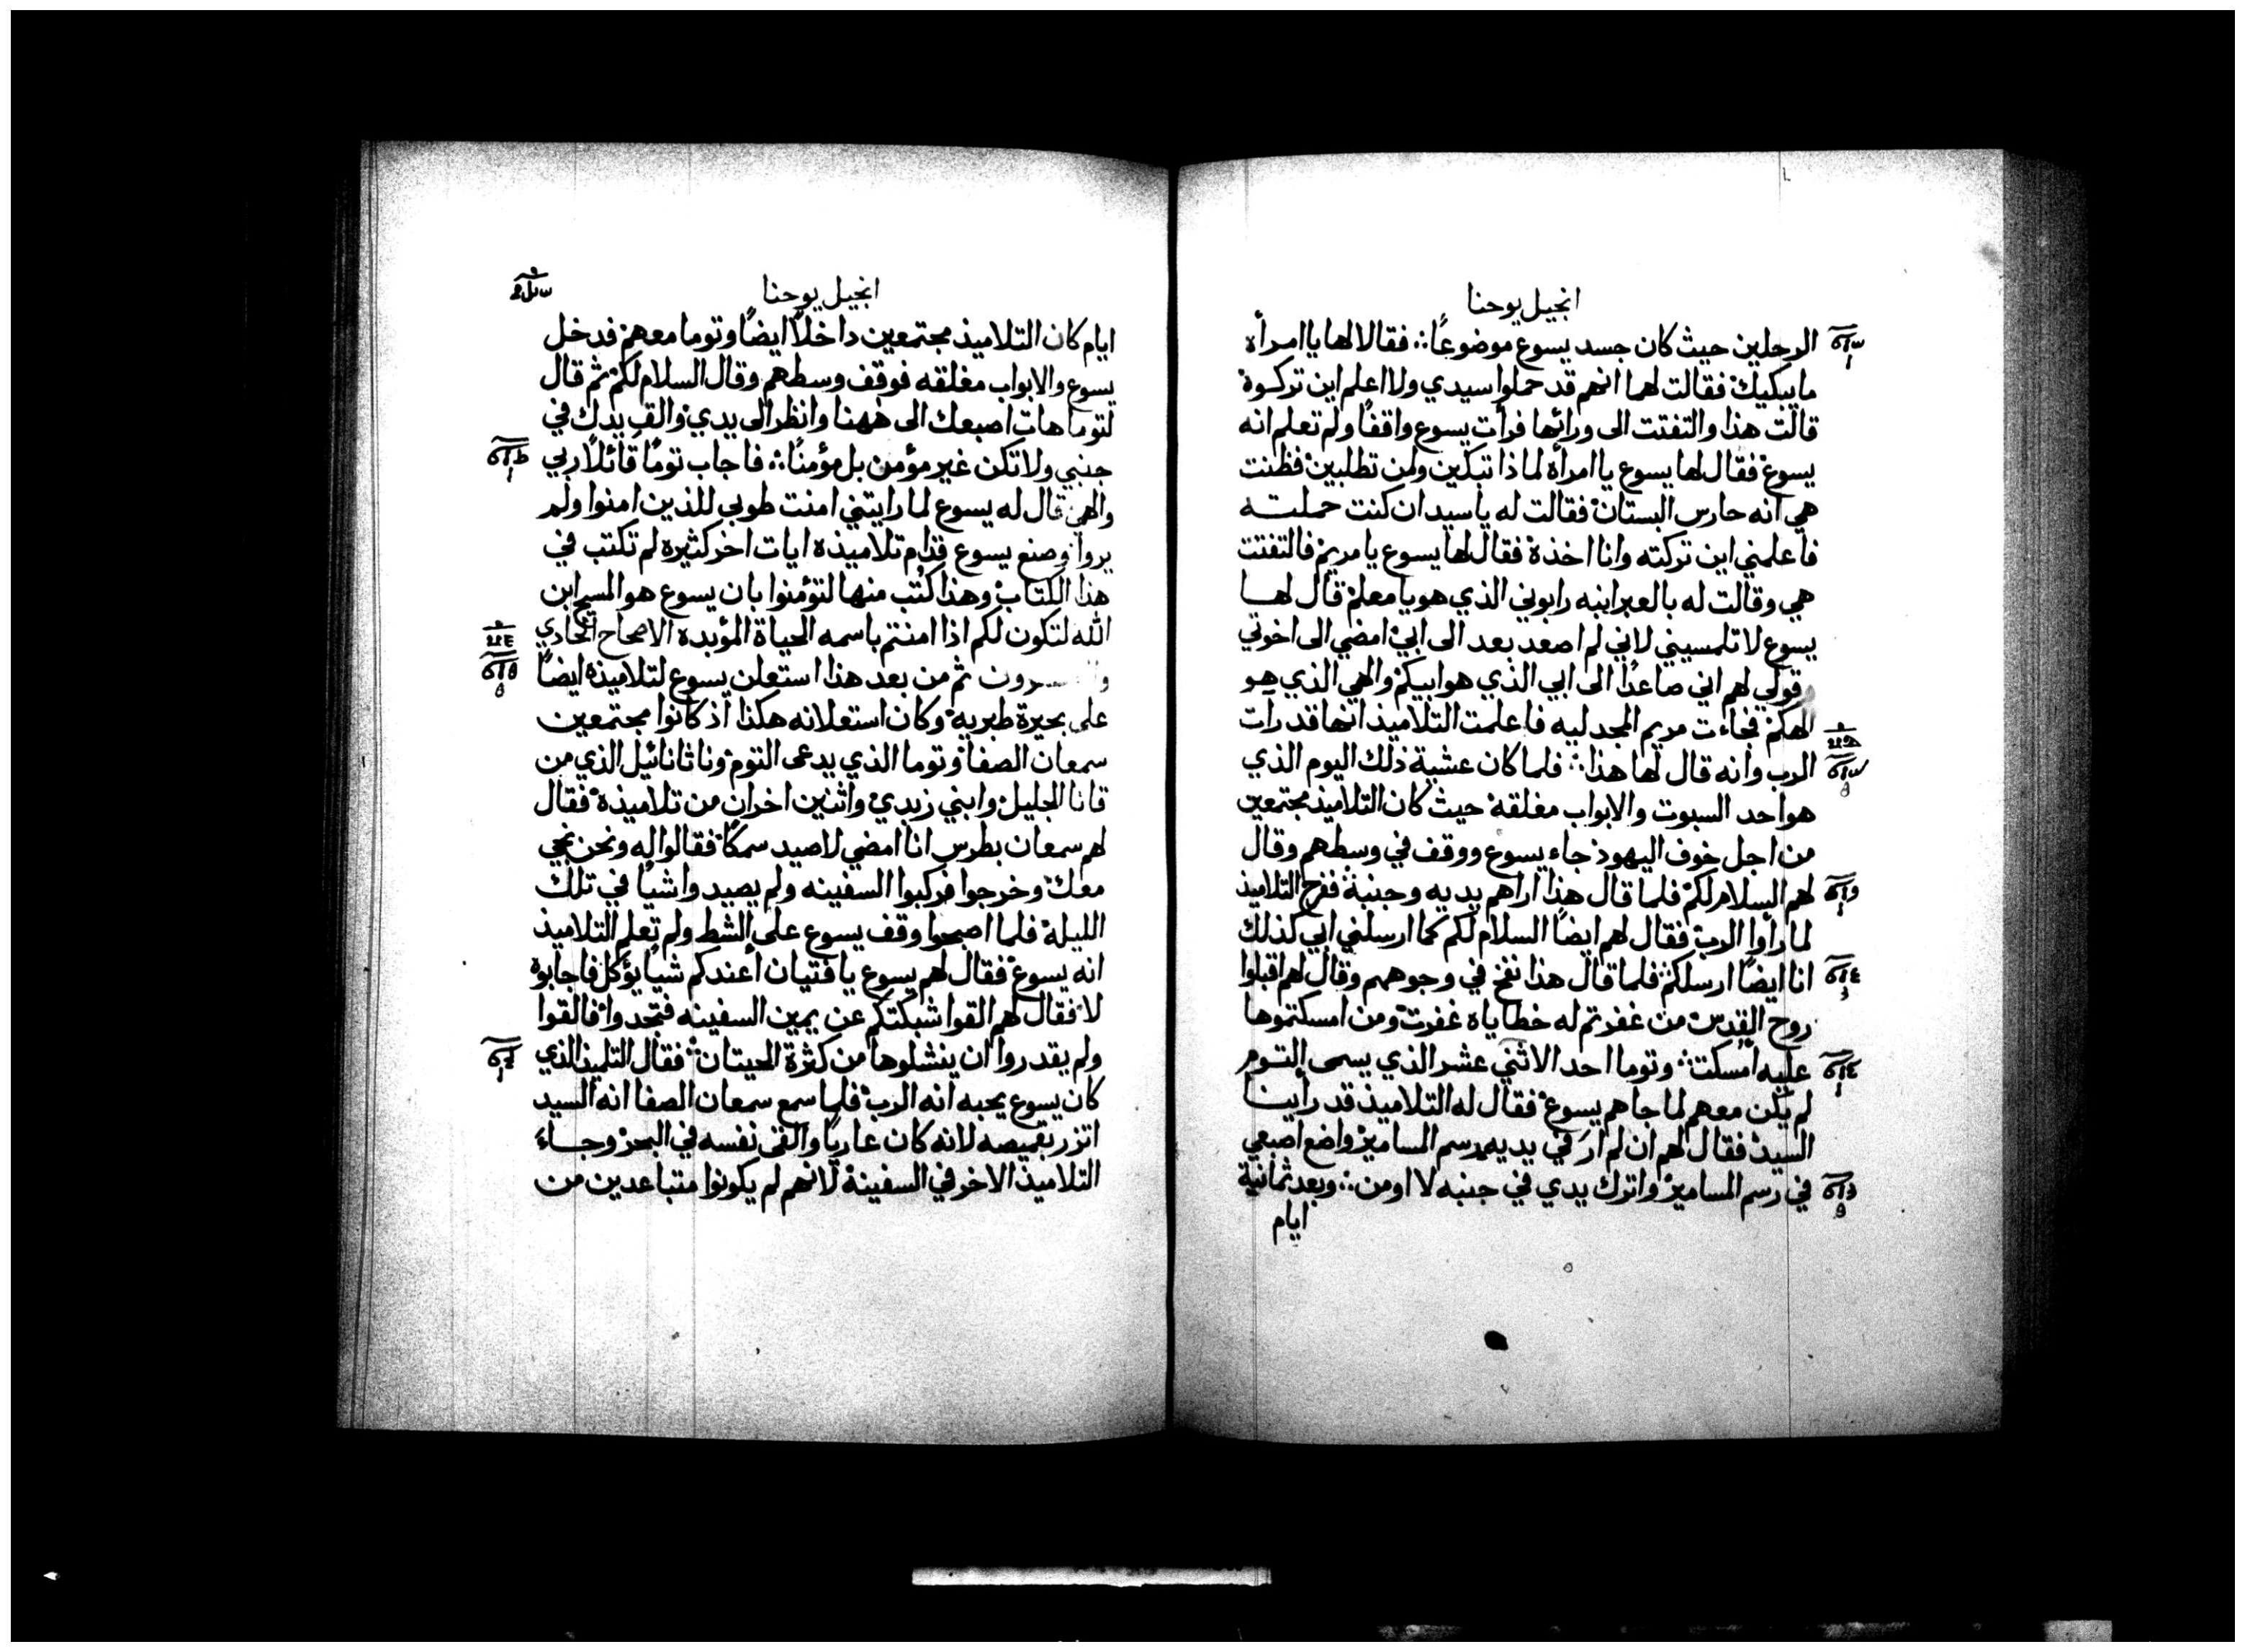 انجيل يوحنا
الرجلين حيث كان جسد يسوع موضوعًا ∴ فقالا لها يا امرأة
ما يبكيك فقالت لهما انهم قد حملوا سيدي ولا اعلم اين تركوه
قالت هذا والتفتت الى ورائها فرأت يسوع واقفًا ولم تعلم انه
يسوع فقال لها يسوع يا امرأة لماذا تبكين ولمن تطلبين فظنت
هي انه حارس البستان فقالت له يا سيد ان كنت حملته
فأعلمني اين تركته وانا اخذه فقال لها يسوع يا مريم فالتفتت
هي وقالت له بالعبرانيه رابوني الذي هو يا معلم قال لها
يسوع لا تلمسيني لاني لم اصعد بعد الى ابي امضي الى اخوتي
قولي لهم اني صاعدًا الى ابي الذي هو ابيكم والهي الذي هو
الهكم فجاءت مريم المجدليه فاعلمت التلاميذ انها قد رأت
الرب وانه قال لها هذا ∴ فلما كان عشية ذلك اليوم الذي
هو احد السبوت والابواب مغلقة حيث كان التلاميذ مجتمعين
من اجل خوف اليهود جاء يسوع ووقف في وسطهم وقال
لهم السلام لكم فلما قال هذا اراهم يديه وجنبه ففرح التلاميذ
لما رأوا الرب فقال لهم ايضًا السلام لكم كما ارسلني ابي كذلك
انا ايضًا ارسلكم فلما قال هذا نفخ في وجوههم وقال لهم اقبلوا
روح القدس من غفرتم له خطاياه غفرت ومن امسكتموها
عليه امسكت ∴ وتوما احد الاثني عشر الذي يسمى التوم
لم يكن معهم لما جاهم يسوع فقال له التلاميذ قد رأينا
السيد فقال لهم ان لم ار في يديه رسم المسامير واضع اصبعي
في رسم المسامير واترك يدي في جنبه لا اومن ∴ وبعد ثمانية
ايام
انجيل يوحنا
ايام كان التلاميذ مجتمعين داخلًا ايضًا وتوما معهم فدخل
يسوع والابواب مغلقه فوقف وسطهم وقال السلام لكم ثم قال
لتوما هات اصبعك الى ههنا وانظر الى يدي والق يدك في
جنبي ولا تكن غير مؤمن بل مؤمنًا ∴ فاجاب توما قائلًا ربي
والهي قال له يسوع لما رايتني امنت طوبى للذين امنوا ولم
يروا وصنع يسوع قدام تلاميذه ايات اخر كثيره لم تكتب في
هذا الكتاب وهذا كتب منها لتؤمنوا بان يسوع هو المسيح ابن
الله لتكون لكم اذا امنتم باسمه الحياة المؤبده الاصحاح الحادي
ثم من بعد هذا استعلن يسوع لتلاميذه ايضًا
على بحيرة طبريه وكان استعلانه هكذا اذ كانوا مجتمعين
سمعان الصفا وتوما الذي يدعى التوم وناثانائيل الذي من
قانا الجليل وابني زبدي واثنين اخران من تلاميذه فقال
لهم سمعان بطرس انا امضي لاصيد سمكًا فقالوا له ونحن نجي
معك وخرجوا فركبوا السفينه ولم يصيدوا شيًا في تلك
الليلة فلما اصبحوا وقف يسوع على الشط ولم تعلم التلاميذ
انه يسوع فقال لهم يسوع يا فتيان أعندكم شيًا يؤكل فاجابوه
لا فقال لهم القوا شبكتكم عن يمين السفينه فتجدوا فالقوا
ولم يقدروا ان ينشلوها من كثرة الحيتان فقال التلميذ الذي
كان يسوع يحبه انه الرب فلما سمع سمعان الصفا انه السيد
اتزر بقميصه لانه كان عاريًا والقى نفسه في البحر وجاء
التلاميذ الاخر في السفينة لانهم لم يكونوا متباعدين من